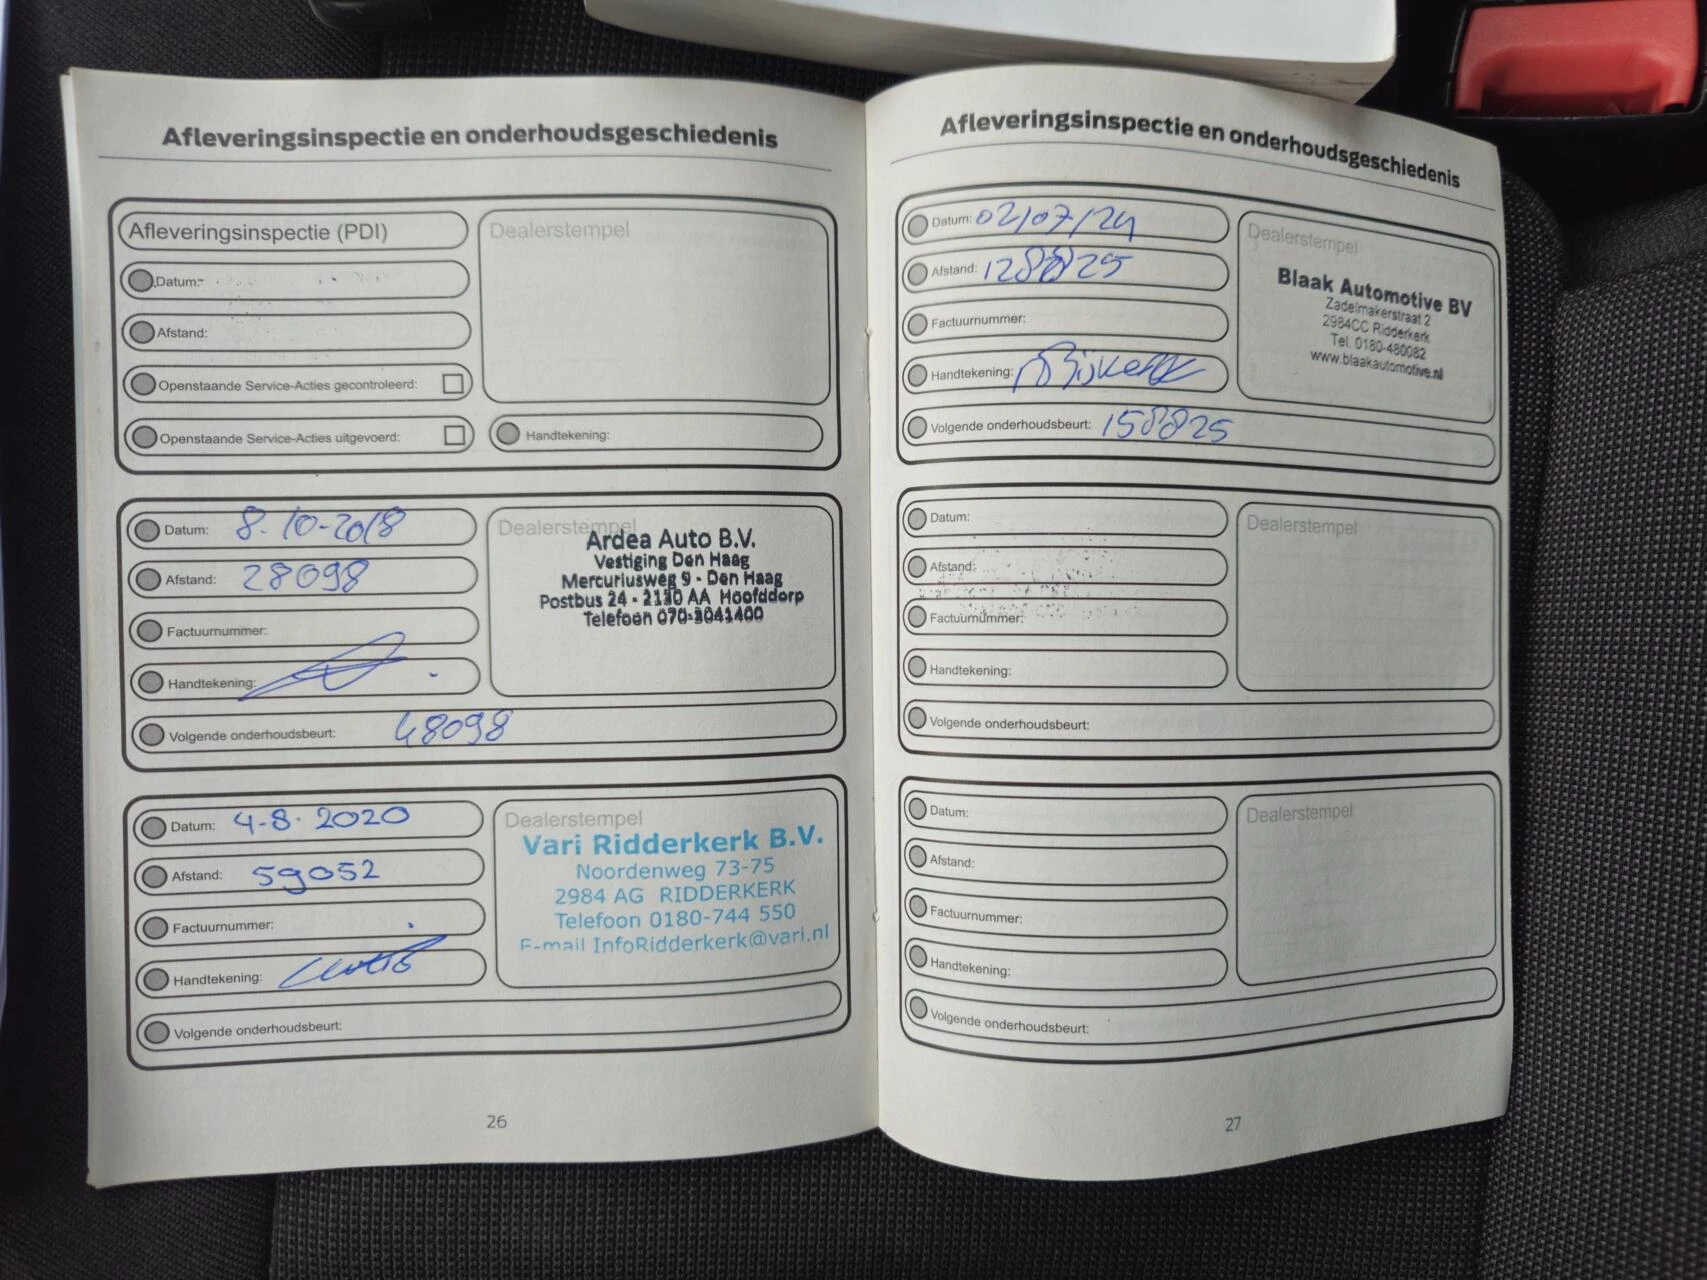 Afleveringsinspectie en onderhoudsgeschiedenis
Afleveringsinspectie (PDI)
Dealerstempel
Datum:
Afstand:
Openstaande Service-Acties gecontroleerd:
Openstaande Service-Acties uitgevoerd:
Handtekening:
Datum: 8-10-2018
Afstand: 28098
Factuurnummer:
Handtekening:
Volgende onderhoudsbeurt: 48098
Dealerstempel
Ardea Auto B.V.
Vestiging Den Haag
Mercuriusweg 9 - Den Haag
Postbus 24 - 2130 AA Hoofddorp
Telefoon 070-3041400
Datum: 4-8-2020
Afstand: 59052
Factuurnummer:
Handtekening:
Volgende onderhoudsbeurt:
Dealerstempel
Vari Ridderkerk B.V.
Noordenweg 73-75
2984 AG RIDDERKERK
Telefoon 0180-744 550
E-mail InfoRidderkerk@vari.nl
26
Afleveringsinspectie en onderhoudsgeschiedenis
Datum: 02/07/24
Afstand: 128825
Factuurnummer:
Handtekening:
Volgende onderhoudsbeurt: 158825
Dealerstempel
Blaak Automotive BV
Zadelmakerstraat 2
2984CC Ridderkerk
Tel. 0180-480082
www.blaakautomotive.nl
Datum:
Afstand:
Factuurnummer:
Handtekening:
Volgende onderhoudsbeurt:
Dealerstempel
Datum:
Afstand:
Factuurnummer:
Handtekening:
Volgende onderhoudsbeurt:
Dealerstempel
27